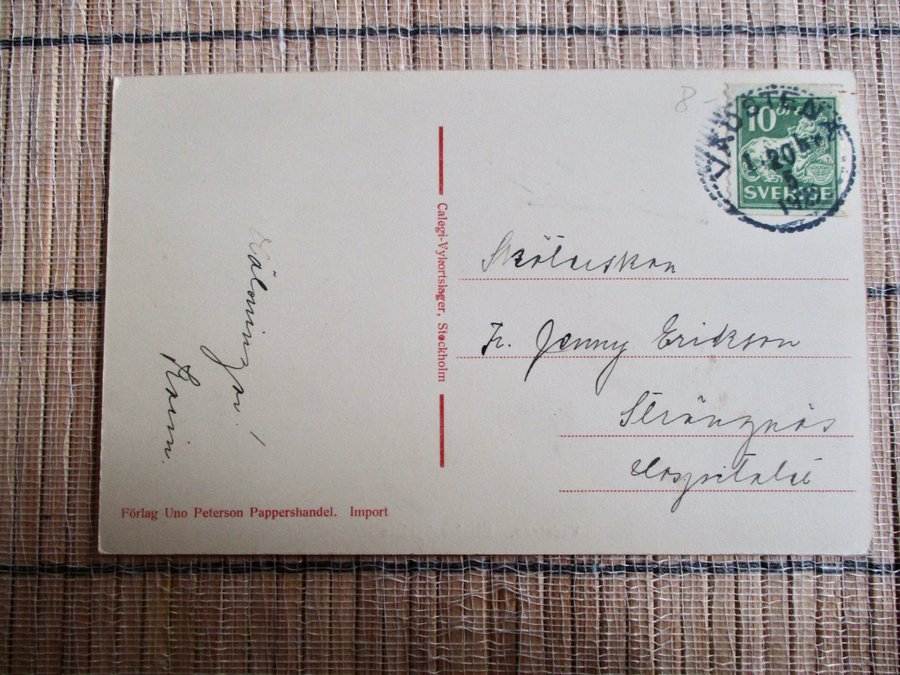 8-
10 ÖRE
SVERIGE
VADSTENA
Hälsningar!
Karin.
Calegi-Vykortslager, Stockholm
Sköterskan
Fr. Jenny Erikson
Strängnäs
Hospitalet
Förlag Uno Peterson Pappershandel. Import